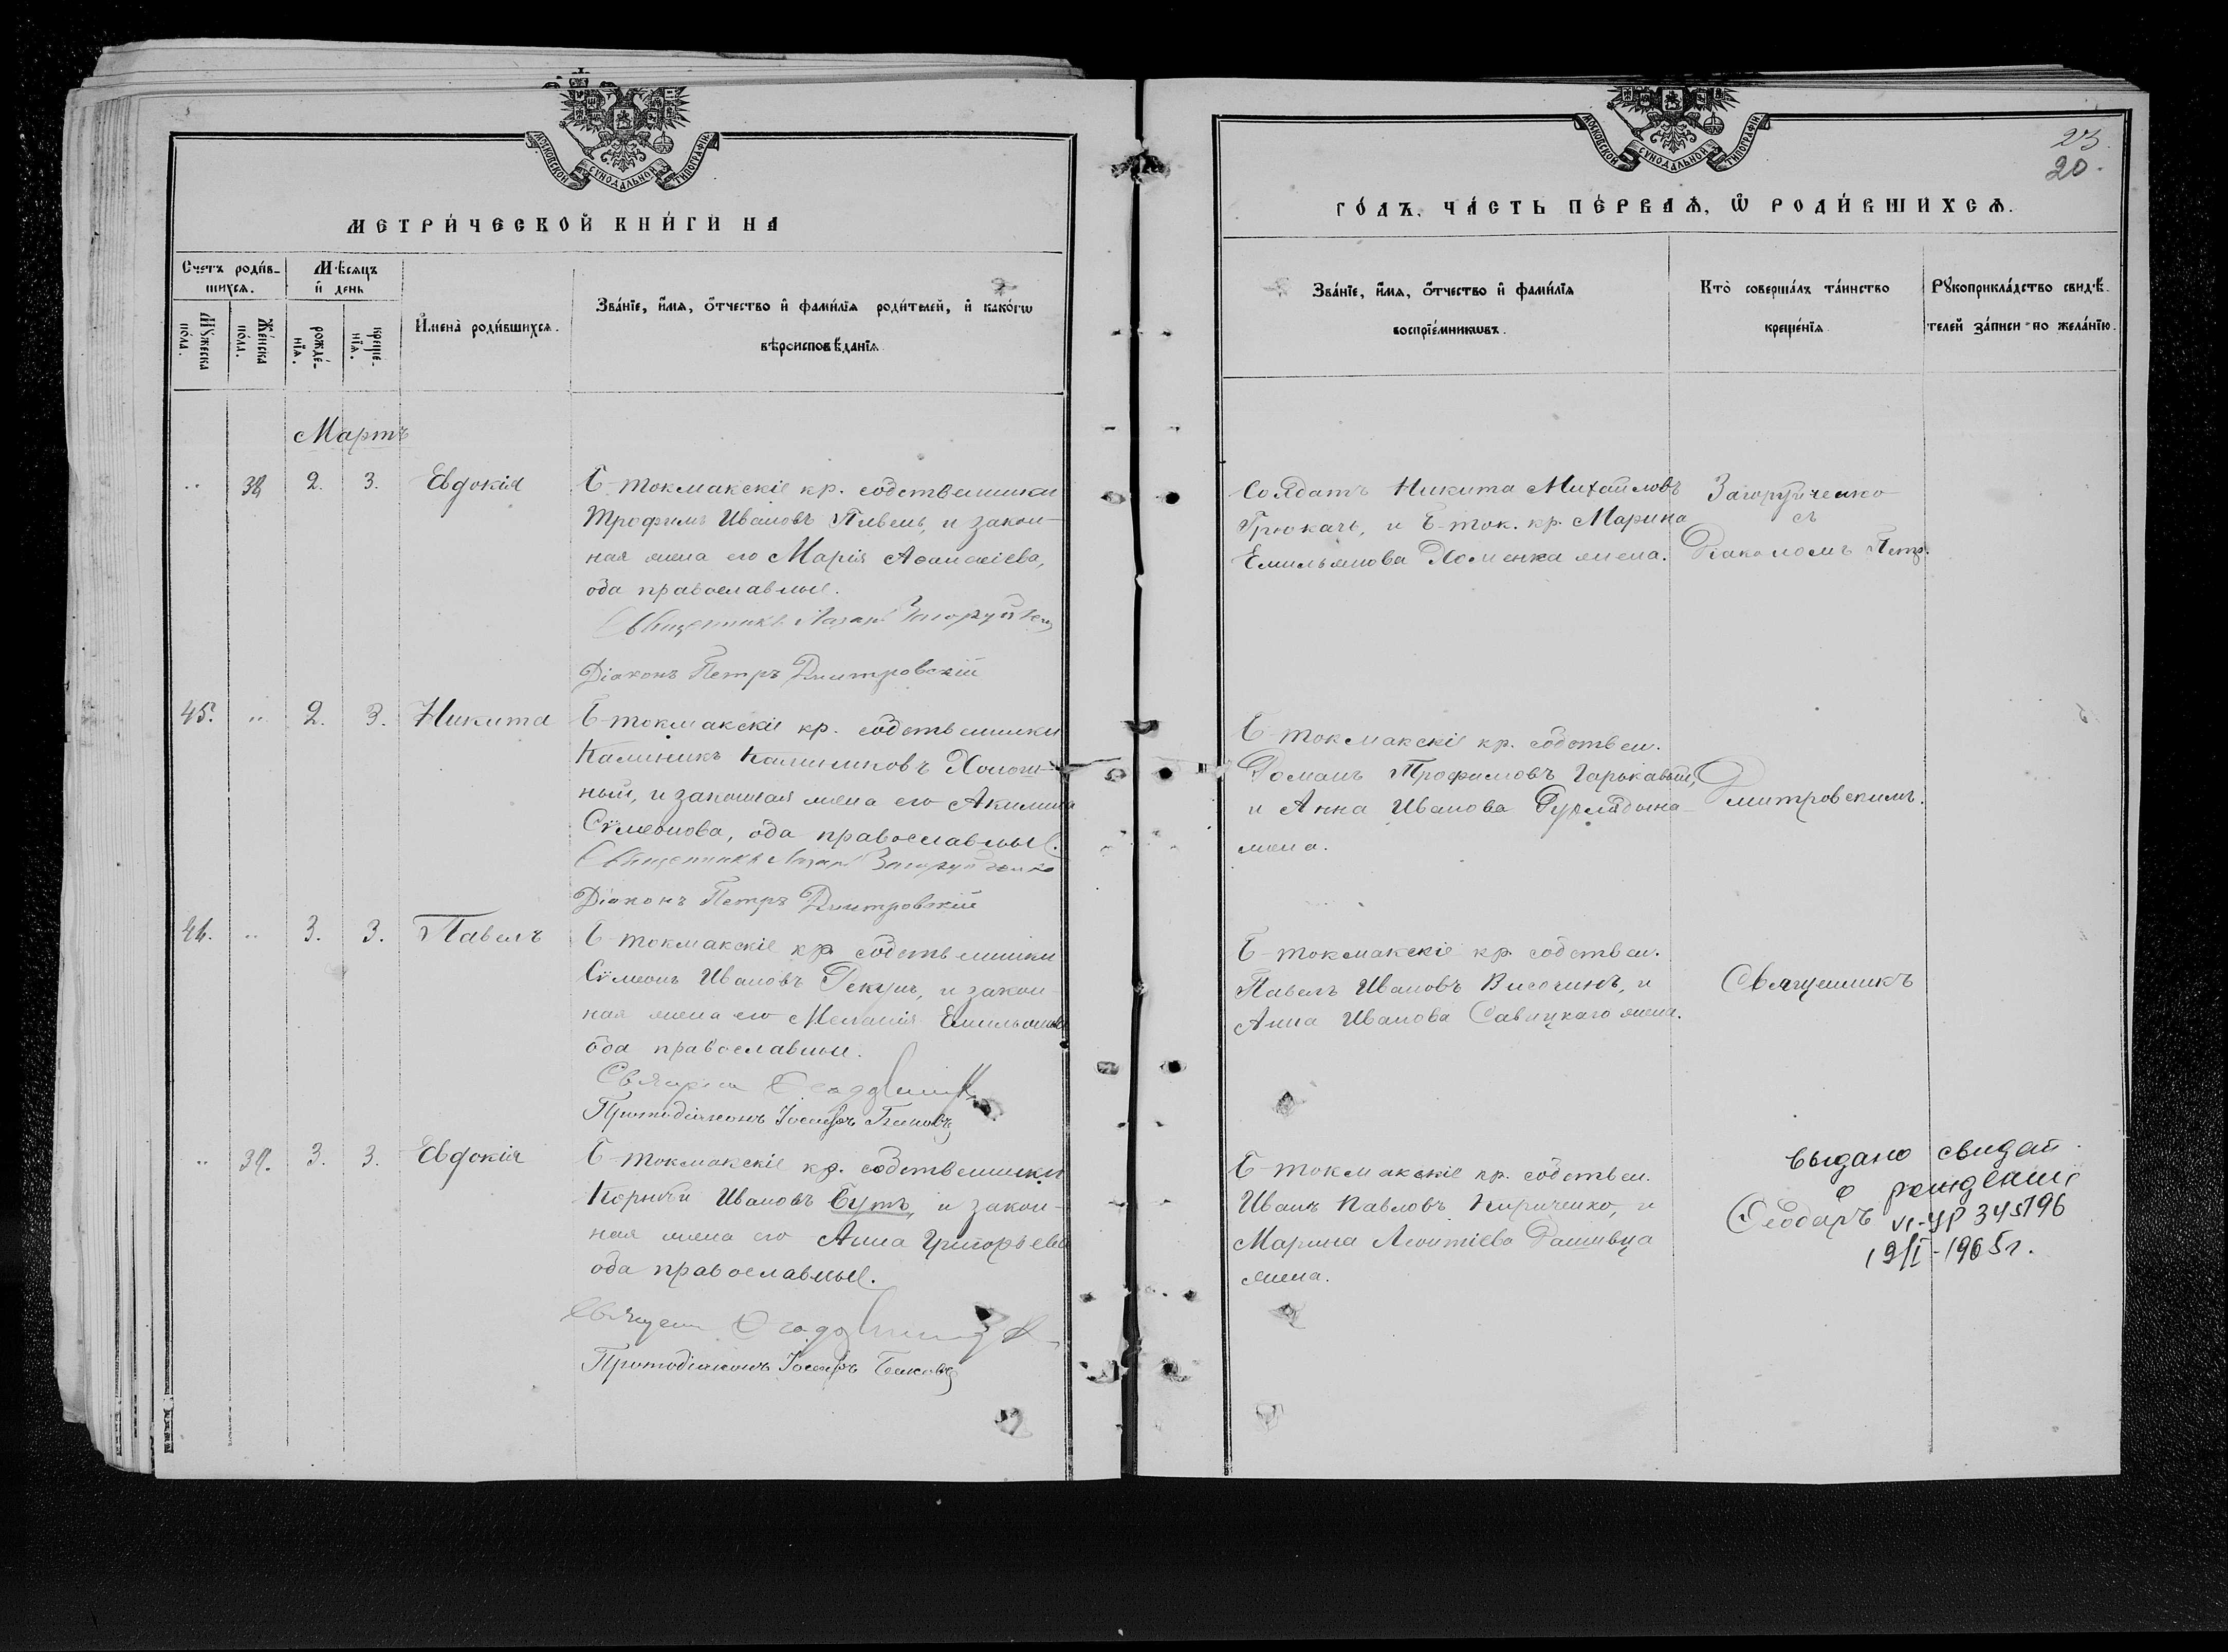 МОСКОВСКОЙ СѴНОДАЛЬНОЙ ТИПОГРАФІИ
МЕТРИ́ЧЕСКОЙ КНИ́ГИ НА
Счетъ роди́вшихся.
Мѣсяцъ и҆ день
Мꙋ́жеска по́ла.
Же́нска по́ла.
рожде́нїѧ.
креще́нїѧ.
И҆мена̀ роди́вшихсѧ.
Зва́нїе, и҆́мѧ, ѻ҆́тчество и҆ фами́лїѧ роди́телей, и҆ како́гѡ
вѣроисповѣ́данїѧ
Мартъ
38 2. 3. Евдокія
Б-токмакскіе кр. собственники
Трофимъ Ивановъ Пивень, и закон-
ная жена его Марія Аѳанасіева,
оба православные.
Священникъ Лазарь Загоруйченко
Діаконъ Петръ Дмитровскій
45. 2. 3. Никита
Б-токмакскіе кр. собственники
Калиникъ Калиниковъ
ный, и законная жена его Акилина
Сѵмеонова, оба православные.
Священникъ Лазарь Загоруйченко
Діаконъ Петръ Дмитровскій
46. 3. 3. Павелъ
Б-токмакскіе кр. собственники
Сѵмеонъ Ивановъ и закон-
ная жена его Меланія Емильянова
оба православные.
Протодіаконъ Іосифъ
39. 3. 3. Евдокія
Б-токмакскіе кр. собственники
Корнилій Ивановъ Бутъ, и закон-
ная жена его Анна Григорьева
оба православные.
Протодіаконъ Іосифъ
МОСКОВСКОЙ СѴНОДАЛЬНОЙ ТИПОГРАФІИ
23.
20.
ГО́ДЪ, ЧА́СТЬ ПЕ́РВАѦ, Ѿ РОДИ́ВШИХСѦ.
Зва́нїе, и҆́мѧ, ѻ҆́тчество и҆ фами́лїѧ
воспрїе́мникѡвъ.
Кто̀ соверша́лъ та́инство
креще́нїѧ
Рꙋкоприкла́дство свидѣ́
телей за́писи по жела́нїю.
Солдатъ Никита Михайловъ
Грюкачъ, и Б-ток. кр. Марина
Емильянова Хоменка жена.
Загоруйченко
съ
Діакономъ Петр.
Б-токмакскіе кр. собствен.
Романъ Трофимовъ Гарькавый,
и Анна Иванова
жена.
Дмитровскимъ.
Б-токмакскіе кр. собствен.
Павелъ Ивановъ Височинъ, и
Анна Иванова Савицкаго жена.
Священникъ
Б-токмакскіе кр. собствен.
Иванъ Павловъ Кириченко, и
Марина Леонтіева
жена.
Ѳеодоръ
выдано свидет.
о рождении
VI-УР 345796
19/I-1965г.